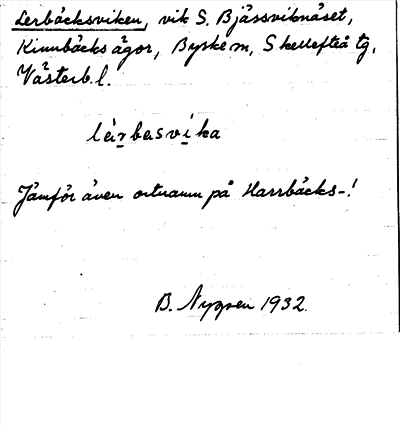 Lerbäcksviken, vik S. Bjässviknäset,
Kinnbäcks ägor, Byske sn, Skellefteå tg,
Västerb. l.
lèr̥basvi̱ka
Jämför även ortnamn på Harrbäcks-!
B. Nygren 1932.